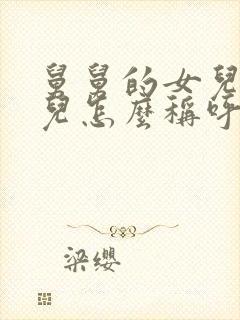 舅舅的女兒
兒怎麼稱呼
梁纓